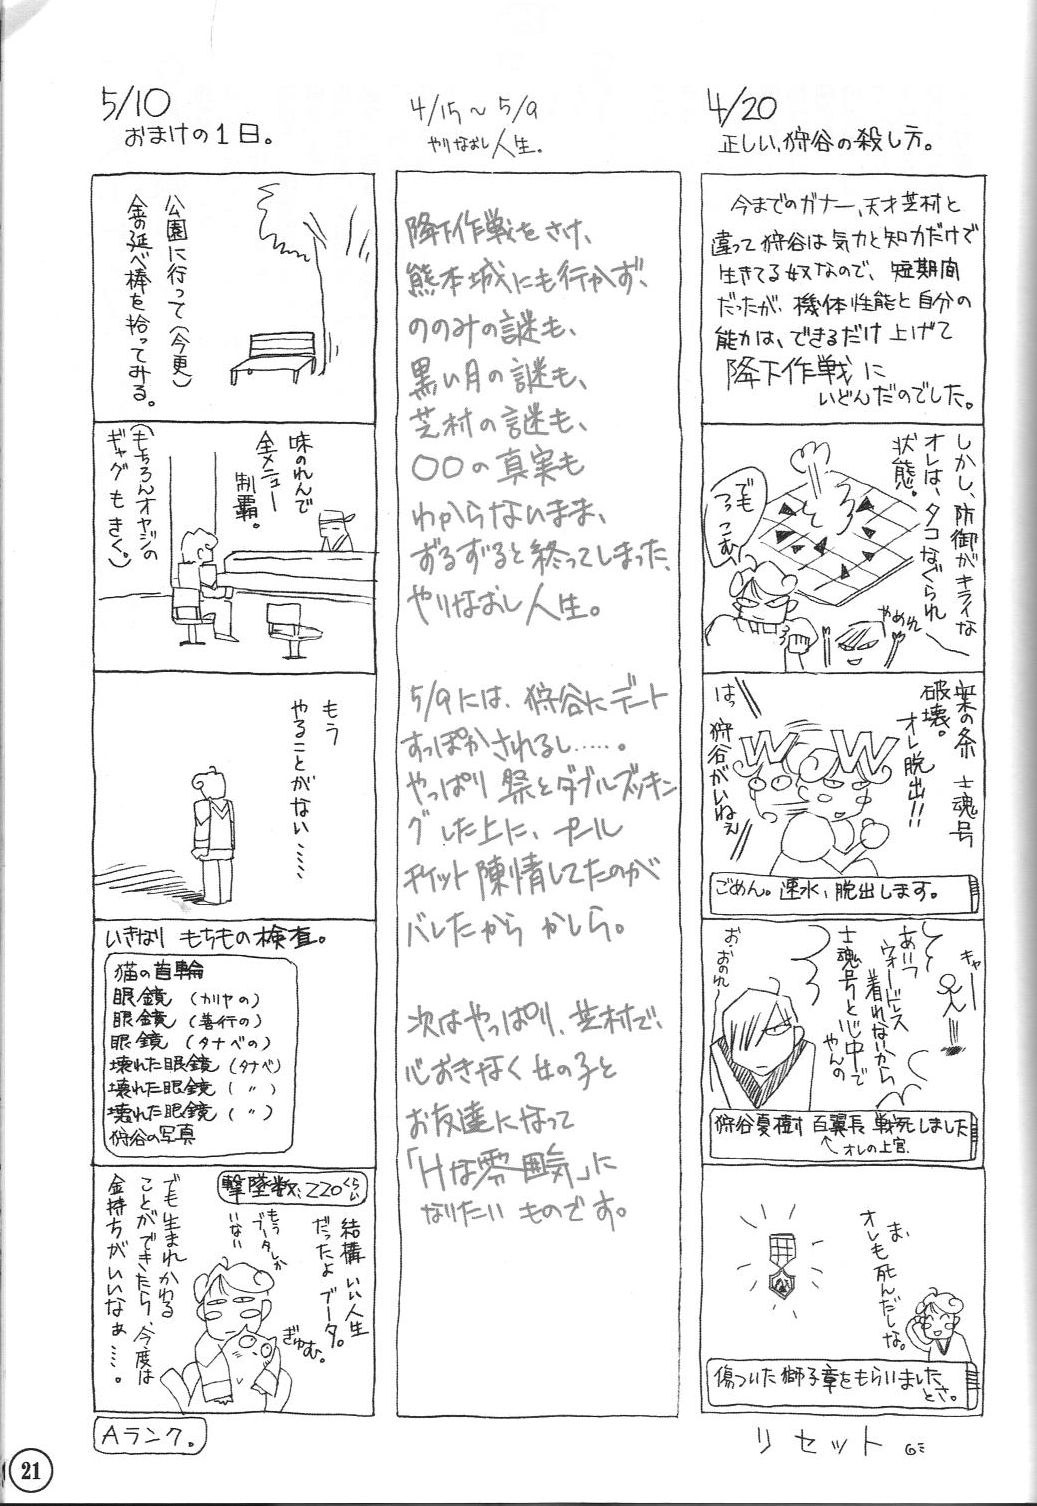 4/20
正しい、狩谷の殺し方。
今までのガナー、天才芝村と
違って狩谷は気力と知力だけで
生きてる奴なので、短期間
だったが、機体性能と自分の
能力は、できるだけ上げて
降下作戦に
いどんだのでした。
しかし、防御がキライな
オレは、タコなぐられ
状態。
でも
つっこむ
やめれ
士魂号
破壊。
オレ脱出!!
はっ
狩谷がいねぇ
ごめん。速水、脱出します。
キャー
あいつ
ウォードレス
着れないから
士魂号とじ中で
やんの
お・おのれ〜
狩谷夏樹 百翼長 戦死しました
オレの上官.
ま、
オレも死んだしな。
傷ついた獅子章をもらいました
とさ。
リセット
4/15〜5/9
やりなおし人生.
降下作戦をさけ、
熊本城にも行かず、
ののみの謎も、
黒い月の謎も、
芝村の謎も、
〇〇の真実も
わからないまま、
ずるずると終ってしまった、
やりなおし人生。
5/9には、狩谷にデート
すっぽかされるし……。
やっぱり祭とダブルブッキン
グした上に、プール
チケット陳情してたのが
バレたからかしら。
次はやっぱり、芝村で、
心おきなく女の子と
お友達になって
「Hな雰囲気」に
なりたいものです。
5/10
おまけの1日。
公園に行って(今更)
金の延べ棒を拾ってみる。
味のれんで
全メニュー
制覇。
(もちろんオヤジの
ギャグもきく。)
もう
やることがない……
いきなり もちもの検査。
猫の首輪
眼鏡(カリヤの)
眼鏡(善行の)
眼鏡(タナベの)
壊れた眼鏡(タナベ)
壊れた眼鏡(〃)
壊れた眼鏡(〃)
狩谷の写真
撃墜数、220くらい
結構いい人生
だったよブータ。
もう
ブータしか
いない
ぎゅむ。
でも生まれかわる
ことができたら、今度は
金持ちがいいなぁ……。
Aランク。
21